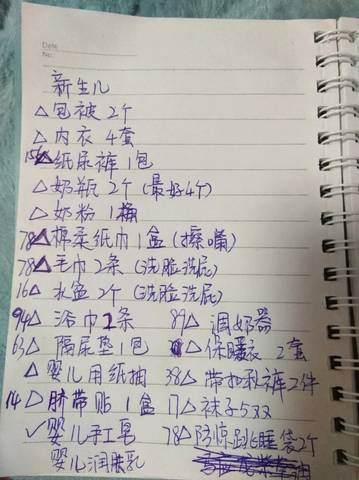 Date
No.
新生儿
△包被 2个
△内衣 4套
△纸尿裤 1包
△奶瓶 2个 (最好4个)
△奶粉 1桶
78△棉柔纸巾 1盒 (擦嘴)
78△毛巾 2条 (洗脸洗屁)
16△水盆 2个 (洗脸洗屁)
94△浴巾 2条 89△调奶器
63△隔尿垫 1包 △保暖衣 2套
△婴儿用纸抽 38△带扣裤 2件
14△脐带贴 1盒 17△袜子5双
✓婴儿手工皂 78△防惊跳睡袋2个
婴儿润肤乳